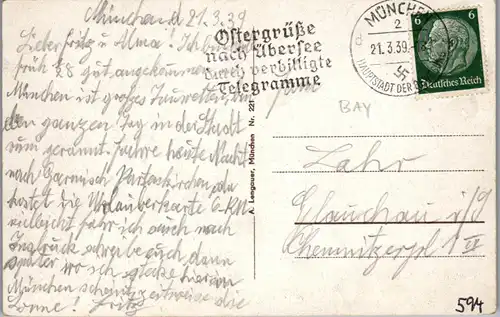 München d 21.3.39
Lieber Fritz u Alma! Ich bin
früh ¾8 gut angekommen
München ist großes
den ganzen Tag in der Stadt
rum gerannt. fahre heute Nacht
nach Garmisch Partenkirchen, da
kostet die Urlauberkarte 6 RM
vielleicht fahr ich auch nach
schreibe euch dann
später wo ich stecke hier in
München scheint zeitweise die
Sonne! Fritz
Ostergrüße
nach Übersee
durch verbilligte
Telegramme
MÜNCHEN
2
21.3.39.
HAUPTSTADT DER
6 6
Deutsches Reich
BAY
A. Lengauer, München Nr. 221
Fam
Glauchau i/S
Chemnitzerpl 1 II
594